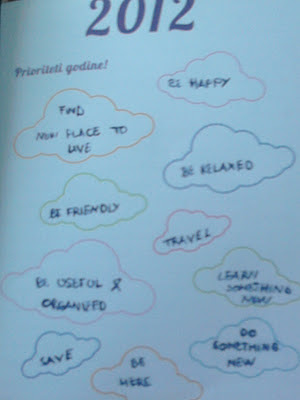 2012
Prioriteti godine!
BE HAPPY
FIND
NEW PLACE TO
LIVE
BE RELAXED
BE FRIENDLY
TRAVEL
LEARN
SOMETHING
NEW
BE USEFUL &
ORGANIZED
DO
SOMETHING
NEW
SAVE
BE
HERE